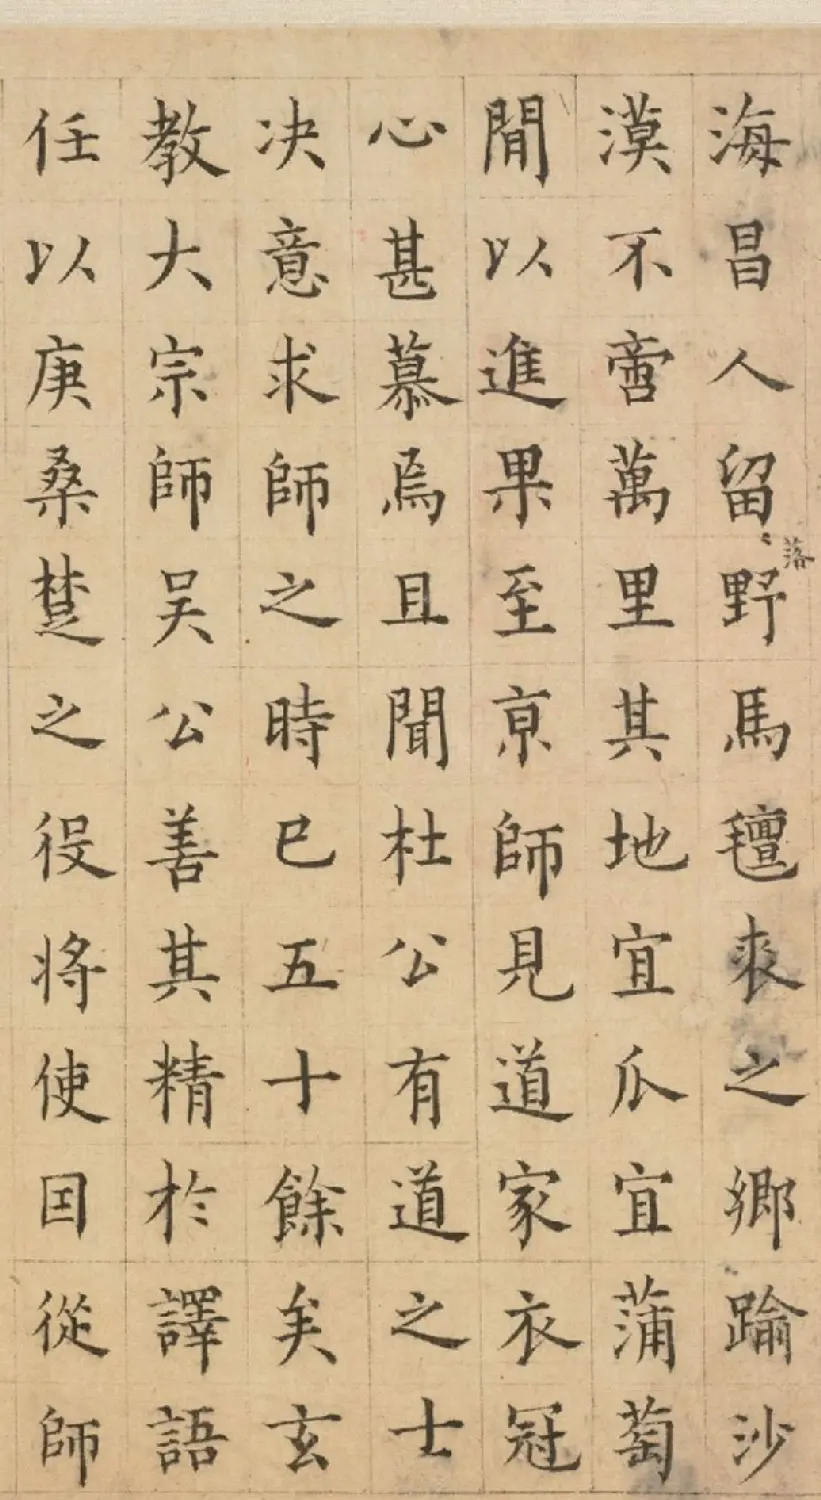 海昌人留落野馬氊裘之鄉踰沙
漠不啻萬里其地宜瓜宜蒲萄
閒以進果至亰師見道家衣冠
心甚慕焉且聞杜公有道之士
决意求師之時已五十餘矣玄
教大宗師吴公善其精於譯語
任以庚桑楚之役将使囙從師